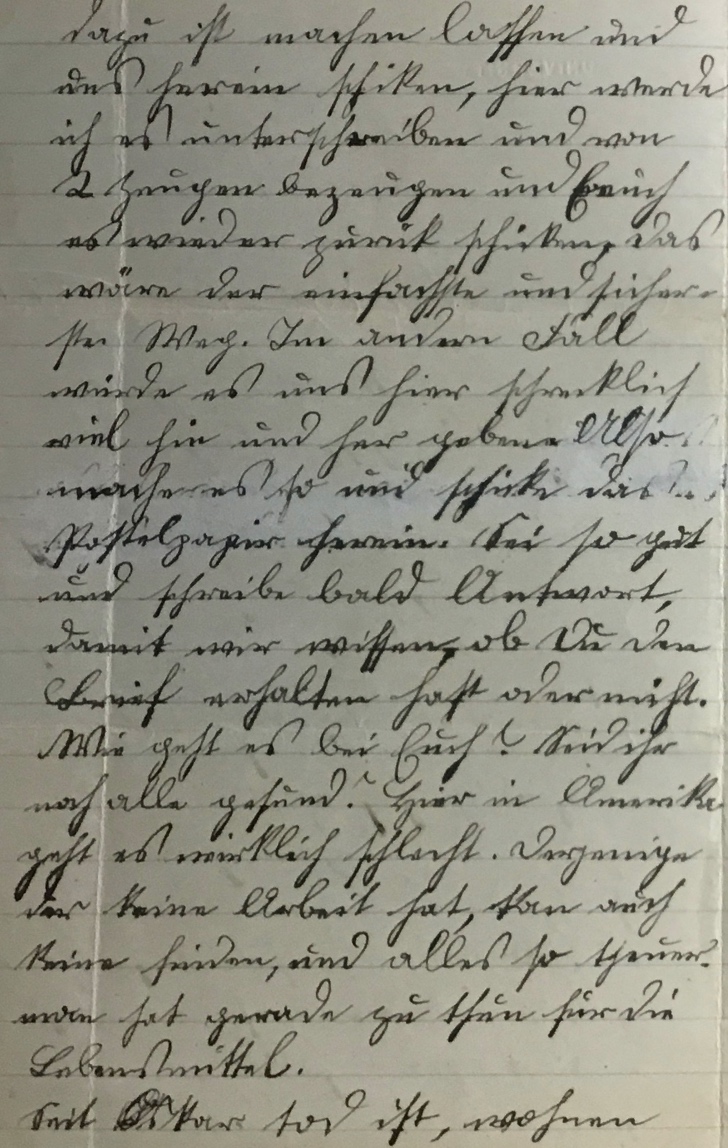 dazu ist machen lassen und
uns herein schiken, hier werde
ich es unterschreiben und von
2 Zeugen bezeugen und Euch
es wieder zurük schicken, das
wäre der einfachste und sicher-
ste Weg. Im andern Fall
würde es uns hier schrecklich
viel hin und her geben. Also
mache es so und schicke das
herein. Sei so gut
und schreibe bald Antwort,
damit wir wissen, ob Du den
Brief erhalten hast oder nicht.
Wie geht es bei Euch? Seid ihr
noch alle gesund? Hier in Amerika
geht es wirklich schlecht. Derjenige
der keine Arbeit hat, kan auch
keine finden, und alles so theuer.
man hat gerade zu thun für die
Lebensmittel.
Seit Oskar tod ist, wohnen